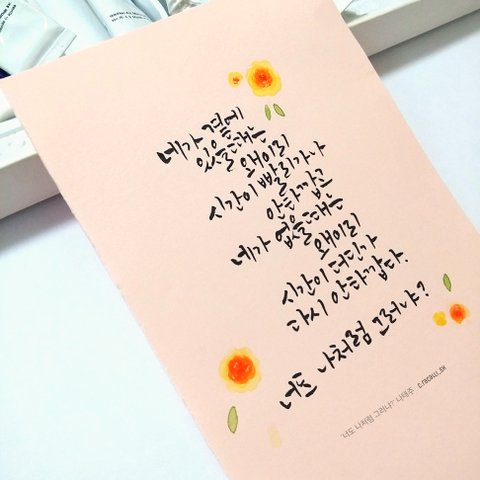 네가 곁에
있을때는
왜이리
시간이 빨리가나
안타깝고
네가 없을때는
왜이리
시간이 더딘가
다시 안타깝다.
너도 나처럼 그러냐?
'너도 나처럼 그러냐?' 나태주